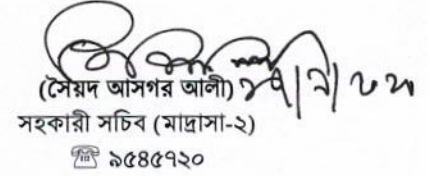 (সৈয়দ আসগর আলী)
সহকারী সচিব (মাদ্রাসা-২)
☎ ৯৫৪৫৭২০